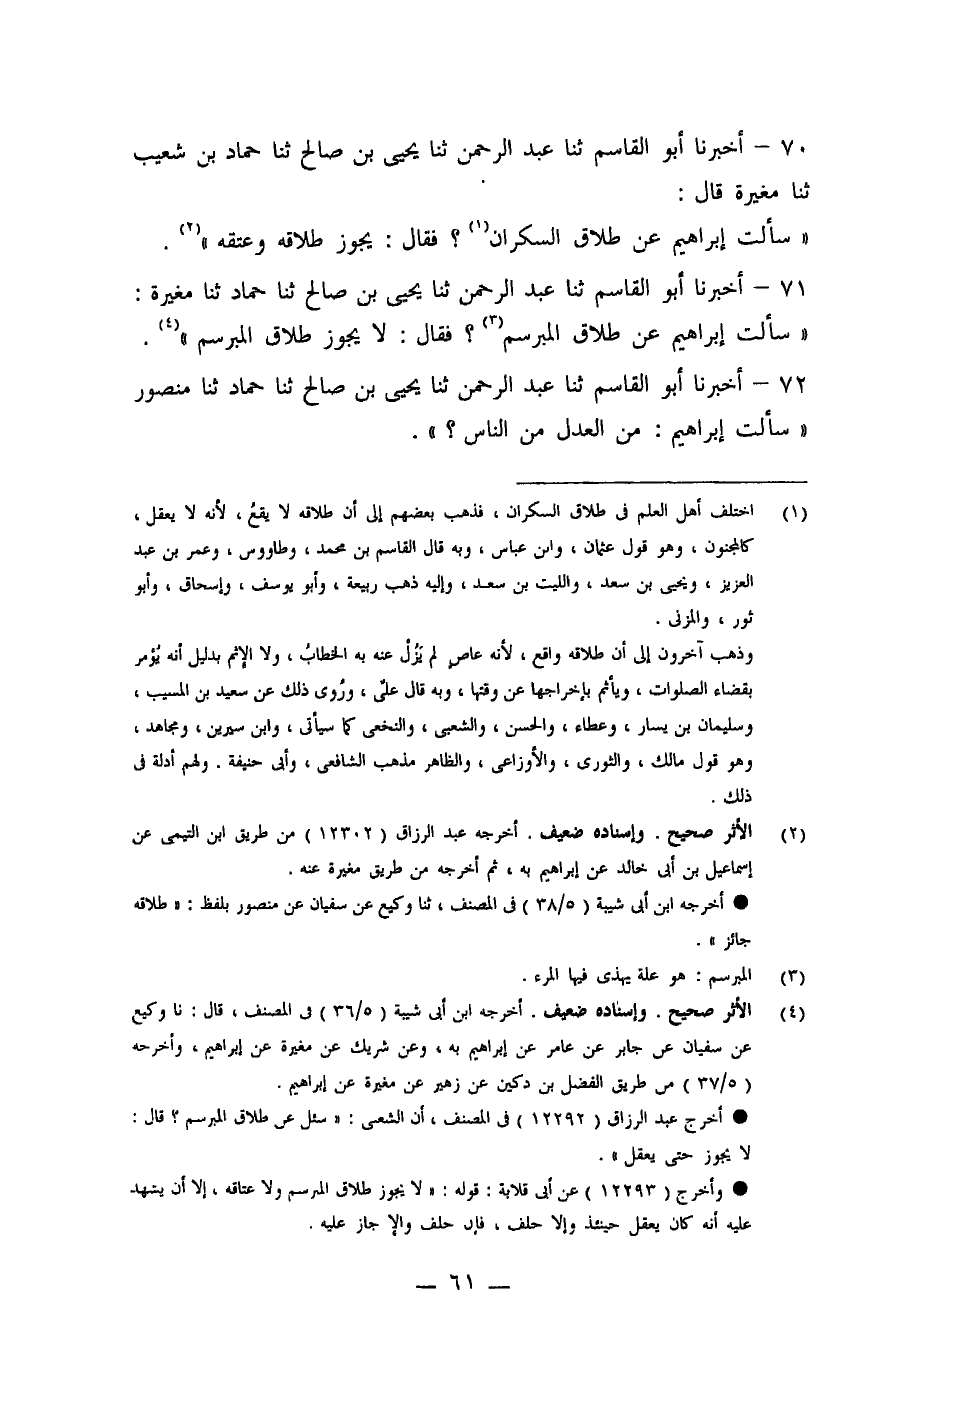 ٧٠ – أخبرنا أبو القاسم ثنا عبد الرحمن ثنا يحيى بن صالح ثنا حماد بن شعيب
ثنا مغيرة قال :
« سألت إبراهيم عن طلاق السكران(١) ؟ فقال : يجوز طلاقه وعتقه »(٢) .
٧١ – أخبرنا أبو القاسم ثنا عبد الرحمن ثنا يحيى بن صالح ثنا حماد ثنا مغيرة :
« سألت إبراهيم عن طلاق المبرسم(٣) ؟ فقال : لا يجوز طلاق المبرسم »(٤) .
٧٢ – أخبرنا أبو القاسم ثنا عبد الرحمن ثنا يحيى بن صالح ثنا حماد ثنا منصور
« سألت إبراهيم : من العدل من الناس ؟ » .
(١) اختلف أهل العلم فى طلاق السكران ، فذهب بعضهم إلى أن طلاقه لا يقعُ ، لأنه لا يعقل ،
كالمجنون ، وهو قول عثمان ، وابن عباس ، وبه قال القاسم بن محمد ، وطاووس ، وعمر بن عبد
العزيز ، ويحيى بن سعد ، والليت بن سعد ، وإليه ذهب ربيعة ، وأبو يوسف ، وإسحاق ، وأبو
ثور ، والمزنى .
وذهب آخرون إلى أن طلاقه واقع ، لأنه عاصٍ لم يَزُلْ عنه به الخطابُ ، ولا الإثم بدليل أنه يُؤمر
بقضاء الصلوات ، ويأثم بإخراجها عن وقتها ، وبه قال علىٌ ، ورُوى ذلك عن سعيد بن المسيب ،
وسليمان بن يسار ، وعطاء ، والحسن ، والشعبى ، والنخعى كما سيأتى ، وابن سيرين ، ومجاهد ،
وهو قول مالك ، والثورى ، والأوزاعى ، والظاهر مذهب الشافعى ، وأبى حنيفة . ولهم أدلة فى
ذلك .
(٢) الأثر صحيح . وإسناده ضعيف . أخرجه عبد الرزاق ( ١٢٣٠٢ ) من طريق ابن التيمى عن
إسماعيل بن أبى خالد عن إبراهيم به ، ثم أخرجه من طريق مغيرة عنه .
● أخرجه ابن أبى شيبة ( ٣٨/٥ ) فى المصنف ، ثنا وكيع عن سفيان عن منصور بلفظ : « طلاقه
جائز » .
(٣) المبرسم : هو علة يهذى فيها المرء .
(٤) الأثر صحيح . وإسناده ضعيف . أخرجه ابن أبى شيبة ( ٣٦/٥ ) فى المصنف ، قال : نا وكيع
عن سفيان عن جابر عن عامر عن إبراهيم به ، وعن شريك عن مغيرة عن إبراهيم ، وأخرجه
( ٣٧/٥ ) من طريق الفضل بن دكين عن زهير عن مغيرة عن إبراهيم .
● أخرج عبد الرزاق ( ١٢٢٩٢ ) فى المصنف ، أن الشعبى : « سئل عن طلاق المبرسم ؟ قال :
لا يجوز حتى يعقل » .
● وأخرج ( ١٢٢٩٣ ) عن أبى قلابة : قوله : « لا يجوز طلاق المبرسم ولا عتاقه ، إلا أن يشهد
عليه أنه كان يعقل حينئذ وإلا حلف ، فإن حلف وإلا جاز عليه .
— ٦١ —